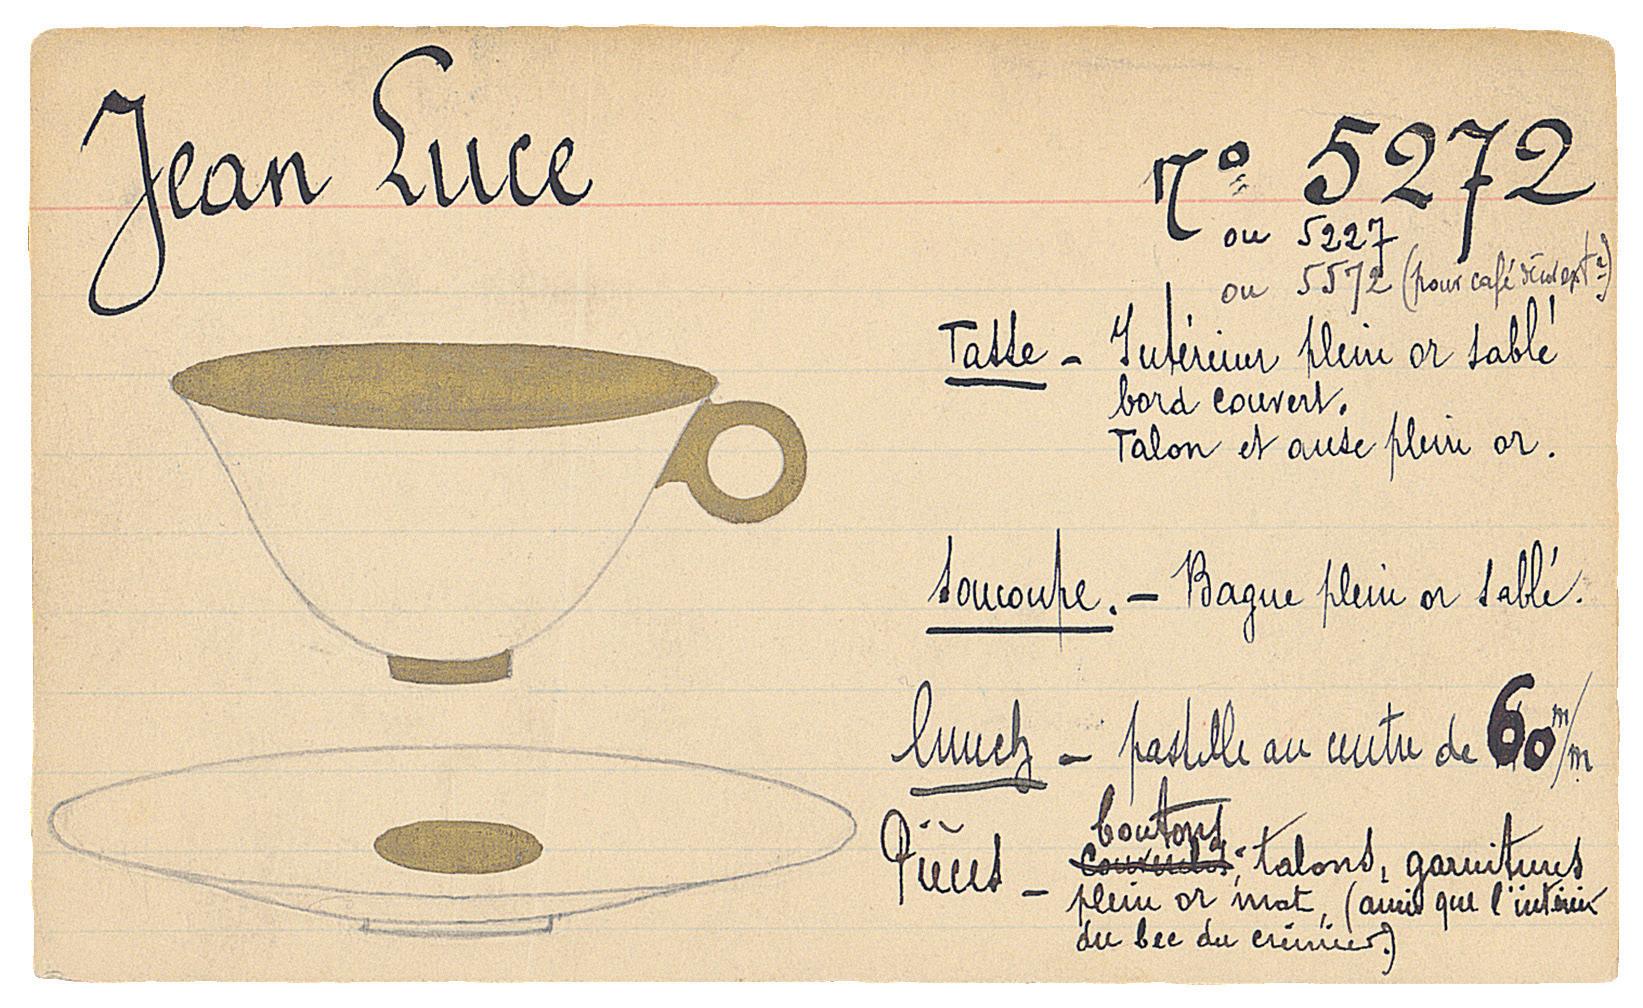 Jean Luce
No 5272
ou 5227
ou 5572 (pour café
Tasse - Intérieur plein or sablé
bord couvert.
Talon et anse plein or.
Soucoupe. - Bague plein or sablé.
lunch - pastille au centre de 60 m/m
boutons
Pièces - talons, garnitures
plein or mat, (ainsi que l'intérieur
du bec du crémier.)